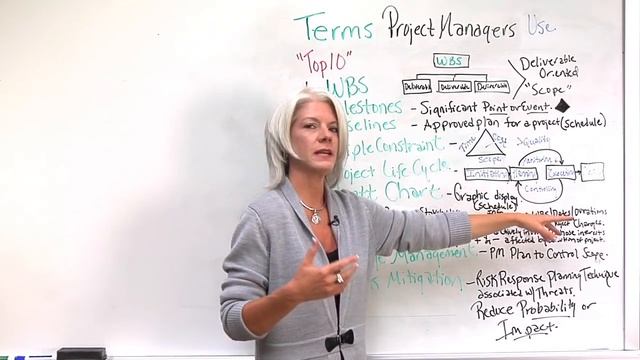 Terms Project Managers Use
"Top 10"
WBS
WBS
Deliverable Deliverable Deliverable
Deliverable
Oriented
"Scope"
lestones - Significant Point or Event.
elines - Approved plan for a project (schedule)
ple Constraint
Time
Scope
Quality
oject Life Cycle
Initiating Planning Executing
Monitoring
Controlling
tt Chart - Graphic display
(schedule)
ject Changes.
- affected by action of project.
Management - PM Plan to Control Scope.
k Mitigation - Risk Response Planning Technique
associated w/ Threats.
Reduce Probability or
Impact.